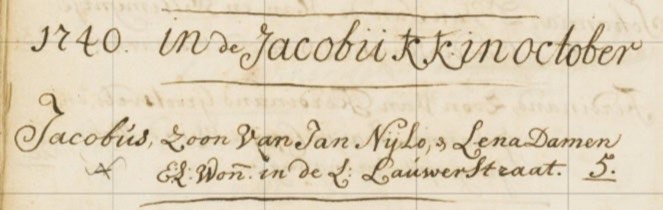 1740. in de Jacobii kk: in october
Jacobus, zoon Van Jan Nijlo, & Lena Damen
El: Won: in de L: Lauwerstraat. 5.